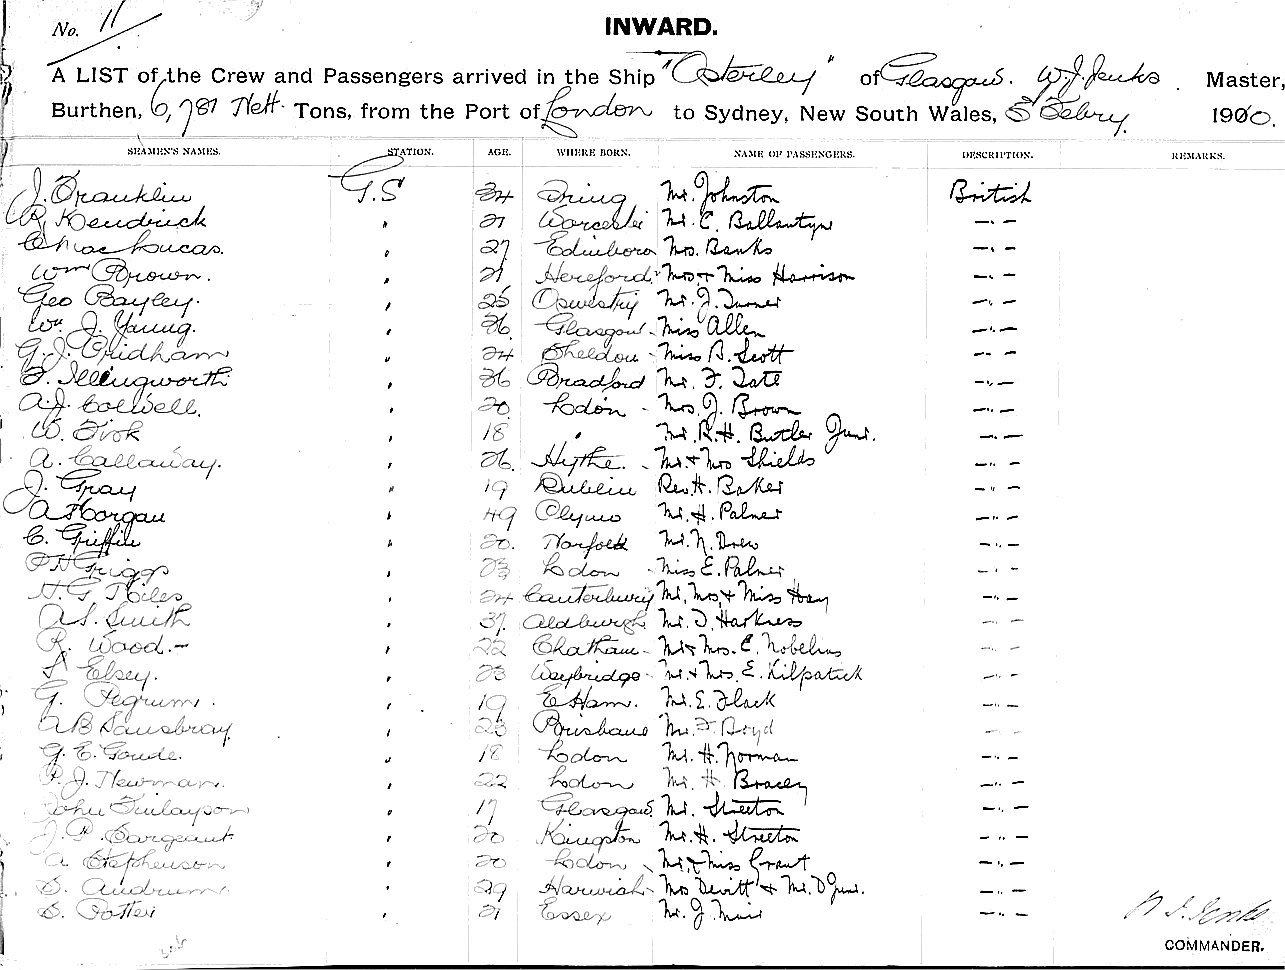 No. 11
INWARD.
A LIST of the Crew and Passengers arrived in the Ship "Osterley" of Glasgow. W. J. Jenks Master,
Burthen, 6,781 Nett Tons, from the Port of London to Sydney, New South Wales, 5 Febry. 1910.
SEAMEN'S NAMES. STATION. AGE. WHERE BORN. NAME OF PASSENGERS. DESCRIPTION. REMARKS.
J. Franklin G.S 24 Mr. Johnston British
R. Kendrick " 21 Worcester Mr. C. Ballantyne —"—
Lucas. " 27 Edinboro Mrs. Banks —"—
Wm Brown. " 21 Hereford. Mrs & Miss Harrison —"—
Geo Bayley. " 25 Oswestry Mr. J. Turner —"—
Wm. J. Young. " 26 Glasgow Miss Allen —"—
G. J. Pridham " 24 Sheldon Miss B. Scott —"—
F. Illingworth " 36 Bradford Mr. F. Tate —"—
A. J. Colwell. " 20 Lodon Mrs. J. Brown —"—
W. " 18 " Mr. R. H. Butler Junr. —"—
A. Callaway. " 26 Hythe. Mr. & Mrs Shields —"—
J. Gray " 19 Dublin Rev. H. Baker —"—
A Morgan " 49 Mr. H. Palmer —"—
C. Griffin " 20. Norfolk Mr. N. Drew —"—
Griggs " 23 Lodon Miss E. Palmer —"—
H. G. " 24 Canterbury Mr, Mrs, & Miss Hay —"—
A. S. Smith " 37. Aldburgh Mr. D. Harkness —"—
R. Wood.— " 22 Chatham Mr & Mrs. C. Nobelius —"—
Elsey. " 23 Weybridge Mr. & Mrs. E. Kilpatrick —"—
G. Pegrum. " 19 E Ham. Mr. E. Flack —"—
A B Sansbray " 23 Brisbane Mr. F. Boyd —"—
G. E. Goude. " 18 Lodon Mr. H. Norman —"—
P. J. Newman. " 22 Lodon Mr. H. Bracey —"—
John Finlayson " 17 Glasgow. Mr. Streeton —"—
J. P. Sargeant " 20 Kingston Mr. H. Streeton —"—
A. Stephenson " 20 Lodon Mr. & Miss Grant —"—
S. Andrum. " 29 Harwich Mrs Devitt & Mr. D Junr. —"—
S. Potter " 21 Essex Mr. J. Muir —"—
W. J. Jenks
COMMANDER.